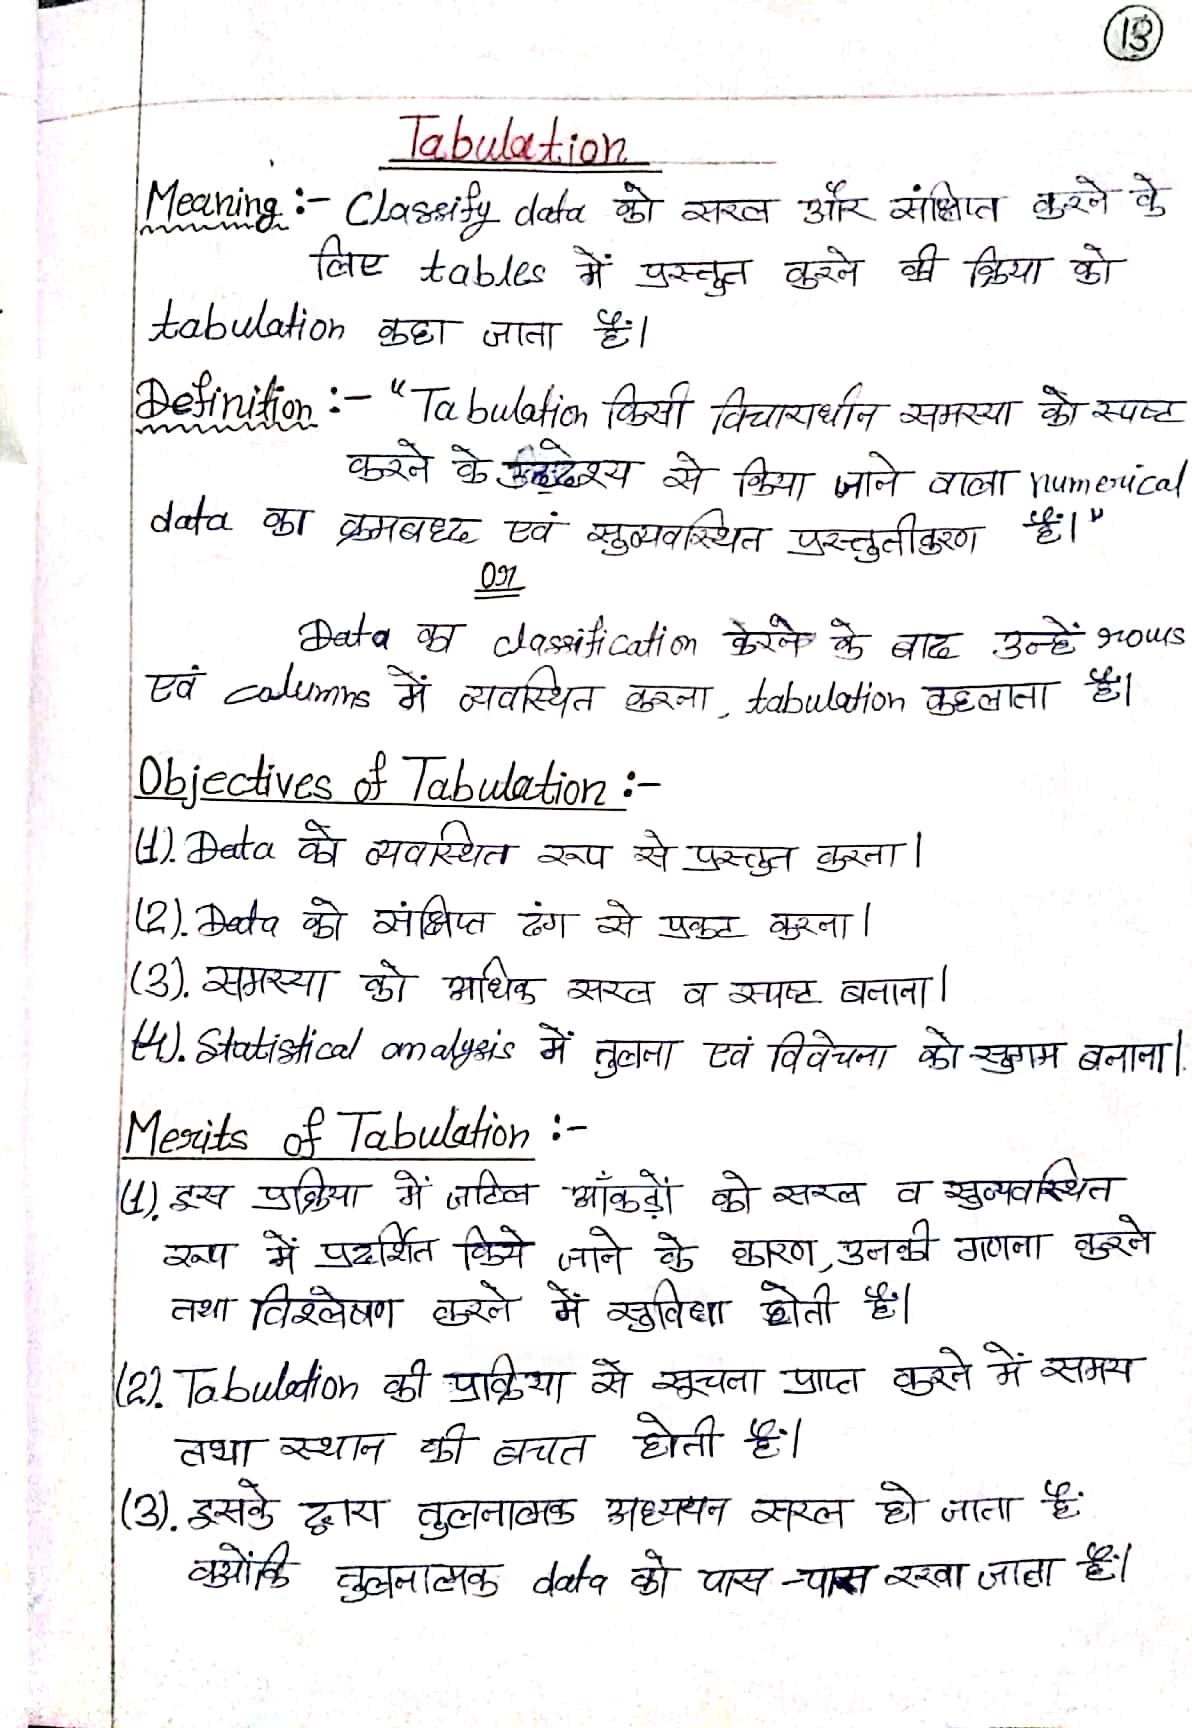 13
Tabulation
Meaning :- Classify data को सरल और संक्षिप्त करने के
लिए tables में प्रस्तुत करने की क्रिया को
tabulation कहा जाता हैं।
Definition :- "Tabulation किसी विचाराधीन समस्या को स्पष्ट
करने के उद्देश्य से किया जाने वाला numerical
data का क्रमबध्द एवं सुव्यवस्थित प्रस्तुतीकरण हैं।"
Or
Data का classification करने के बाद उन्हें rows
एवं columns में व्यवस्थित करना, tabulation कहलाता हैं।
Objectives of Tabulation :-
(1). Data को व्यवस्थित रूप से प्रस्तुत करना।
(2). Data को संक्षिप्त ढंग से प्रकट करना।
(3). समस्या को अधिक सरल व स्पष्ट बनाना।
(4). Statistical analysis में तुलना एवं विवेचना को सुगम बनाना।
Merits of Tabulation :-
(1). इस प्रक्रिया में जटिल आँकड़ों को सरल व सुव्यवस्थित
रूप में प्रदर्शित किये जाने के कारण, उनकी गणना करने
तथा विश्लेषण करने में सुविधा होती हैं।
(2). Tabulation की प्रक्रिया से सूचना प्राप्त करने में समय
तथा स्थान की बचत होती हैं।
(3). इसके द्वारा तुलनात्मक अध्ययन सरल हो जाता हैं
क्योंकि तुलनात्मक data को पास-पास रखा जाता हैं।